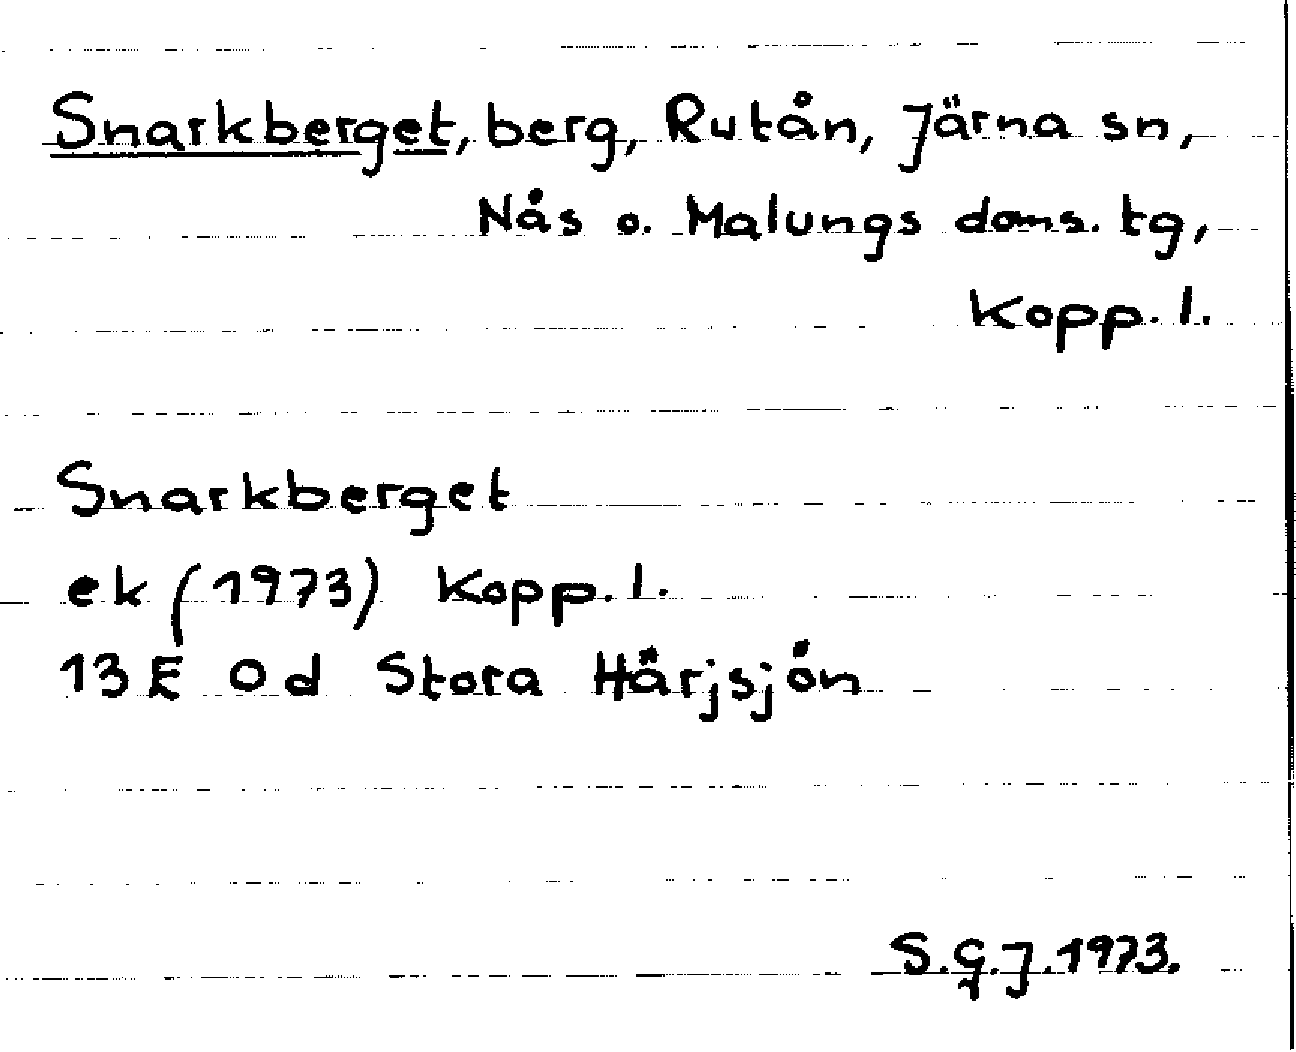 Snarkberget, berg, Rutån, Järna sn,
Nås o. Malungs doms. tg,
Kopp. l.
Snarkberget
ek (1973) Kopp. l.
13 E 0 d Stora Härjsjön
S.G.J. 1973.